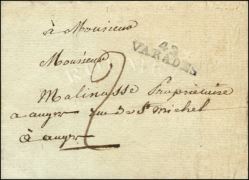 à Monsieur
Monsieur
43
VARADES
2
Malinasse Propriétaire
a angers rue de St Michel
à angers